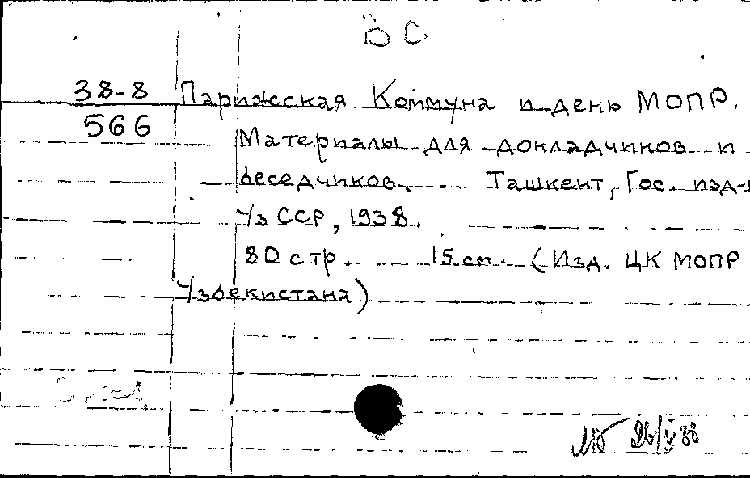 ВС
38-8 Парижская Коммуна и день МОПР.
566 Материалы для докладчиков и
беседчиков. Ташкент, Гос. изд-
УзССР, 1938.
80 стр. 15 см. (Изд. ЦК МОПР
Узбекистана)